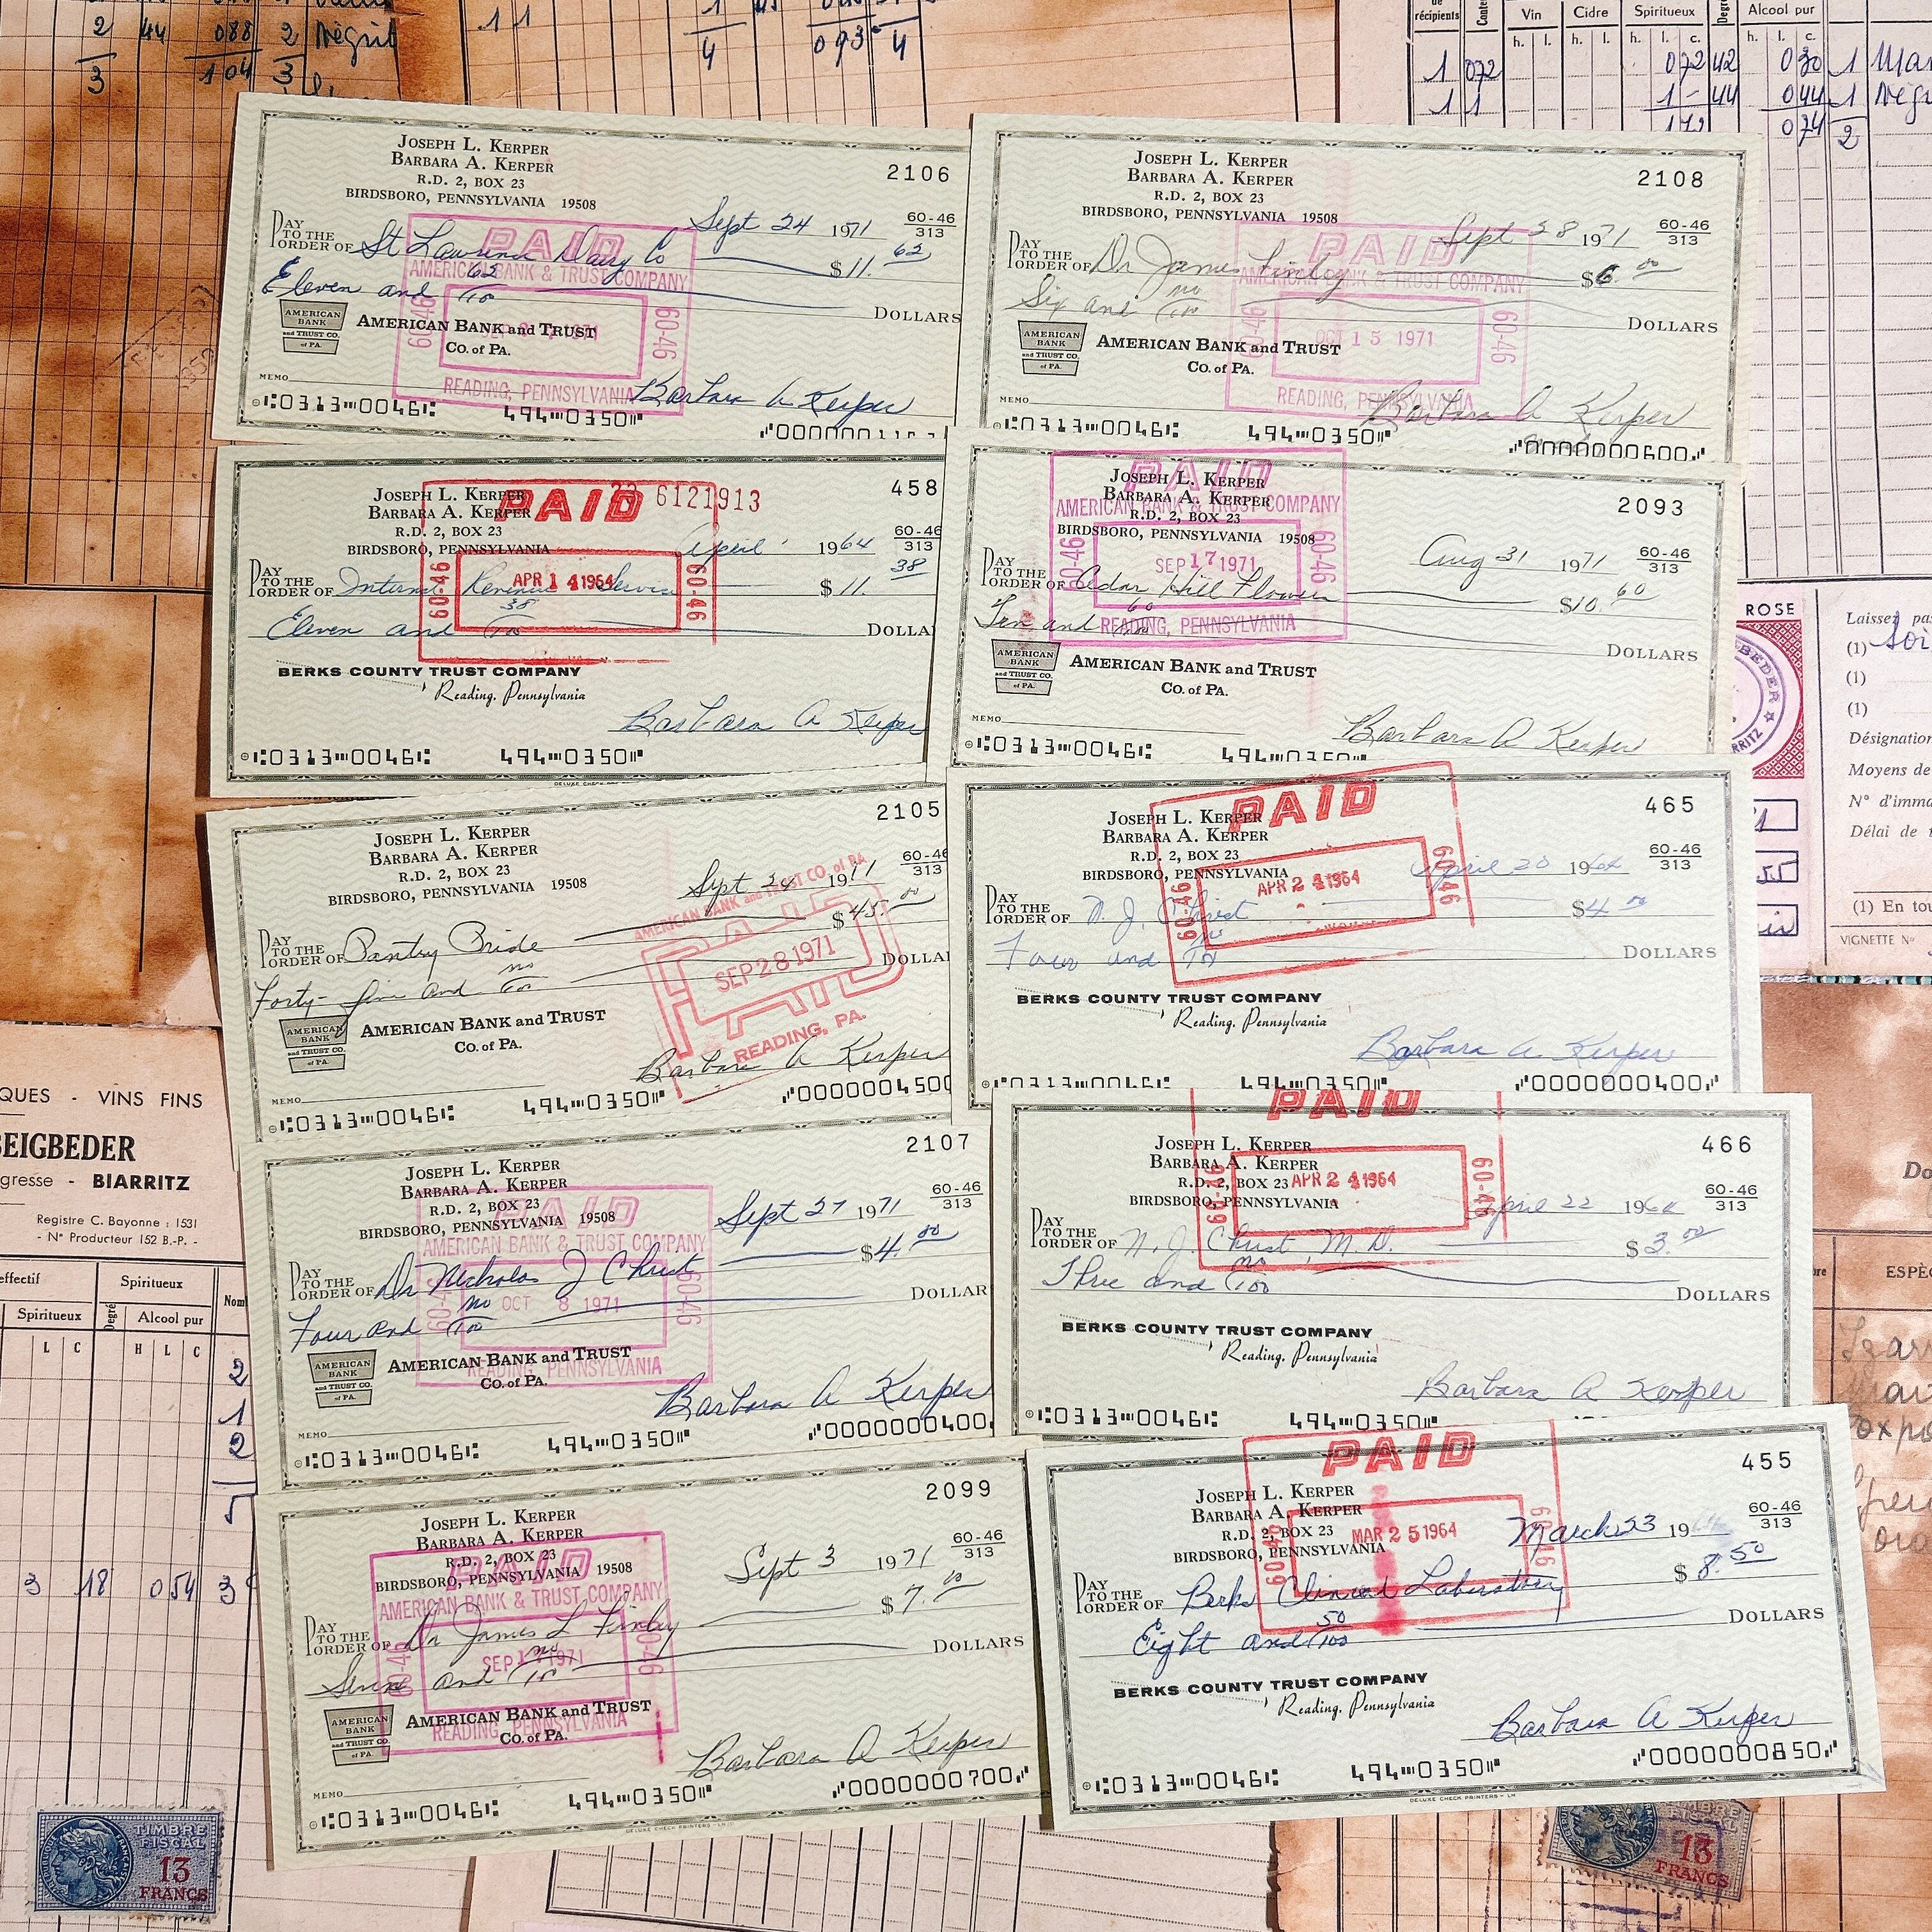 2 44 088 2 Négrit
3 104 3
1 1
4 093 4
de récipients Conte Vin Cidre Spiritueux Degré Alcool pur
h. l. h. l. h. l. c. h. l. c.
1 072 072 42 030 1 Mar
1 1 1 - 44 044 1 Négr
172 074 2
JOSEPH L. KERPER
BARBARA A. KERPER
R.D. 2, BOX 23
BIRDSBORO, PENNSYLVANIA 19508
2106
60-46
313
Sept 24 1971
PAY TO THE ORDER OF St Lawrence Dairy Co $11. 62
Eleven and 62/100 DOLLARS
PAID
AMERICAN BANK & TRUST COMPANY
60-46 1971 60-46
READING, PENNSYLVANIA
AMERICAN BANK and TRUST CO. of PA.
AMERICAN BANK and TRUST
CO. of PA.
MEMO
Barbara A Kerper
0313 0046 494 0350
JOSEPH L. KERPER
BARBARA A. KERPER
R.D. 2, BOX 23
BIRDSBORO, PENNSYLVANIA 19508
2108
60-46
313
Sept 28 1971
PAY TO THE ORDER OF Dr James Finley $6. 00
Six and no/100 DOLLARS
PAID
AMERICAN BANK & TRUST COMPANY
60-46 OCT 15 1971 60-46
READING, PENNSYLVANIA
AMERICAN BANK and TRUST CO. of PA.
AMERICAN BANK and TRUST
CO. of PA.
MEMO
Barbara A Kerper
0313 0046 494 0350 0000000600
JOSEPH L. KERPER
BARBARA A. KERPER
R.D. 2, BOX 23
BIRDSBORO, PENNSYLVANIA
6121913
458
60-46
313
April 1964
PAY TO THE ORDER OF Internal Revenue Service $11. 38
Eleven and 38/100 DOLLA
PAID
60-46 APR 14 1964 60-46
BERKS COUNTY TRUST COMPANY
Reading, Pennsylvania
Barbara A Kerper
0313 0046 494 0350
DELUXE CHECK
JOSEPH L. KERPER
BARBARA A. KERPER
R.D. 2, BOX 23
BIRDSBORO, PENNSYLVANIA 19508
2093
60-46
313
Aug 31 1971
PAY TO THE ORDER OF Cedar Hill Flowers $10. 60
Ten and 60/100 DOLLARS
PAID
AMERICAN BANK & TRUST COMPANY
60-46 SEP 17 1971 60-46
READING, PENNSYLVANIA
AMERICAN BANK and TRUST CO. of PA.
AMERICAN BANK and TRUST
CO. of PA.
MEMO
Barbara A Kerper
0313 0046 494 0350
ROSE
BEDER
RRITZ
Laissez pa
(1)
(1)
(1)
Désignation
Moyens de
N° d'imma
Délai de
(1) En tou
VIGNETTE N°
JOSEPH L. KERPER
BARBARA A. KERPER
R.D. 2, BOX 23
BIRDSBORO, PENNSYLVANIA 19508
2105
60-46
313
Sept 24 1971
PAY TO THE ORDER OF Pantry Pride $45. 00
Forty-five and no/100 DOLLA
AMERICAN BANK and TRUST CO. of PA.
PAID
SEP 28 1971
READING, PA.
AMERICAN BANK and TRUST CO. of PA.
AMERICAN BANK and TRUST
CO. of PA.
MEMO
Barbara A Kerper
0313 0046 494 0350 000000450
JOSEPH L. KERPER
BARBARA A. KERPER
R.D. 2, BOX 23
BIRDSBORO, PENNSYLVANIA
465
60-46
313
April 20 1964
PAY TO THE ORDER OF N. J. Christ $4 00
Four and no/100 DOLLARS
PAID
60-46 APR 24 1964 60-46
BERKS COUNTY TRUST COMPANY
Reading, Pennsylvania
Barbara A. Kerper
0313 0046 494 0350 0000000400
QUES - VINS FINS
BEIGBEDER
gresse - BIARRITZ
Registre C. Bayonne : 1531
- N° Producteur 152 B.-P. -
effectif Spiritueux
Spiritueux Degré Alcool pur Nom
L C H L C
2
1
2
5
3 18 054 3
JOSEPH L. KERPER
BARBARA A. KERPER
R.D. 2, BOX 23
BIRDSBORO, PENNSYLVANIA 19508
2107
60-46
313
Sept 27 1971
PAY TO THE ORDER OF Dr Nicholas J Christ $4. 00
Four and no/100 DOLLAR
PAID
AMERICAN BANK & TRUST COMPANY
60-46 OCT 8 1971 60-46
READING, PENNSYLVANIA
AMERICAN BANK and TRUST CO. of PA.
AMERICAN BANK and TRUST
CO. of PA.
MEMO
Barbara A Kerper
0313 0046 494 0350 0000000400
JOSEPH L. KERPER
BARBARA A. KERPER
R.D. 2, BOX 23
BIRDSBORO, PENNSYLVANIA
466
60-46
313
April 22 1964
PAY TO THE ORDER OF N. J. Christ, M.D. $3. 00
Three and no/100 DOLLARS
PAID
60-46 APR 24 1964 60-46
BERKS COUNTY TRUST COMPANY
Reading, Pennsylvania
Barbara A Kerper
0313 0046 494 0350
Do
ESPÈC
JOSEPH L. KERPER
BARBARA A. KERPER
R.D. 2, BOX 23
BIRDSBORO, PENNSYLVANIA 19508
2099
60-46
313
Sept 3 1971
PAY TO THE ORDER OF Dr James L Finley $7. 00
Seven and no/100 DOLLARS
PAID
AMERICAN BANK & TRUST COMPANY
60-46 SEP 17 1971 60-46
READING, PENNSYLVANIA
AMERICAN BANK and TRUST CO. of PA.
AMERICAN BANK and TRUST
CO. of PA.
MEMO
Barbara A Kerper
0313 0046 494 0350 0000000700
DELUXE CHECK PRINTERS
JOSEPH L. KERPER
BARBARA A. KERPER
R.D. 2, BOX 23
BIRDSBORO, PENNSYLVANIA
455
60-46
313
March 23 19
PAY TO THE ORDER OF Berks Clinical Laboratory $8. 50
Eight and 50/100 DOLLARS
PAID
60-46 MAR 25 1964 60-46
BERKS COUNTY TRUST COMPANY
Reading, Pennsylvania
Barbara A Kerper
0313 0046 494 0350 0000000850
DELUXE CHECK PRINTERS
TIMBRE
FISCAL
13
FRANCS
TIMBRE
FISCAL
13
FRANCS